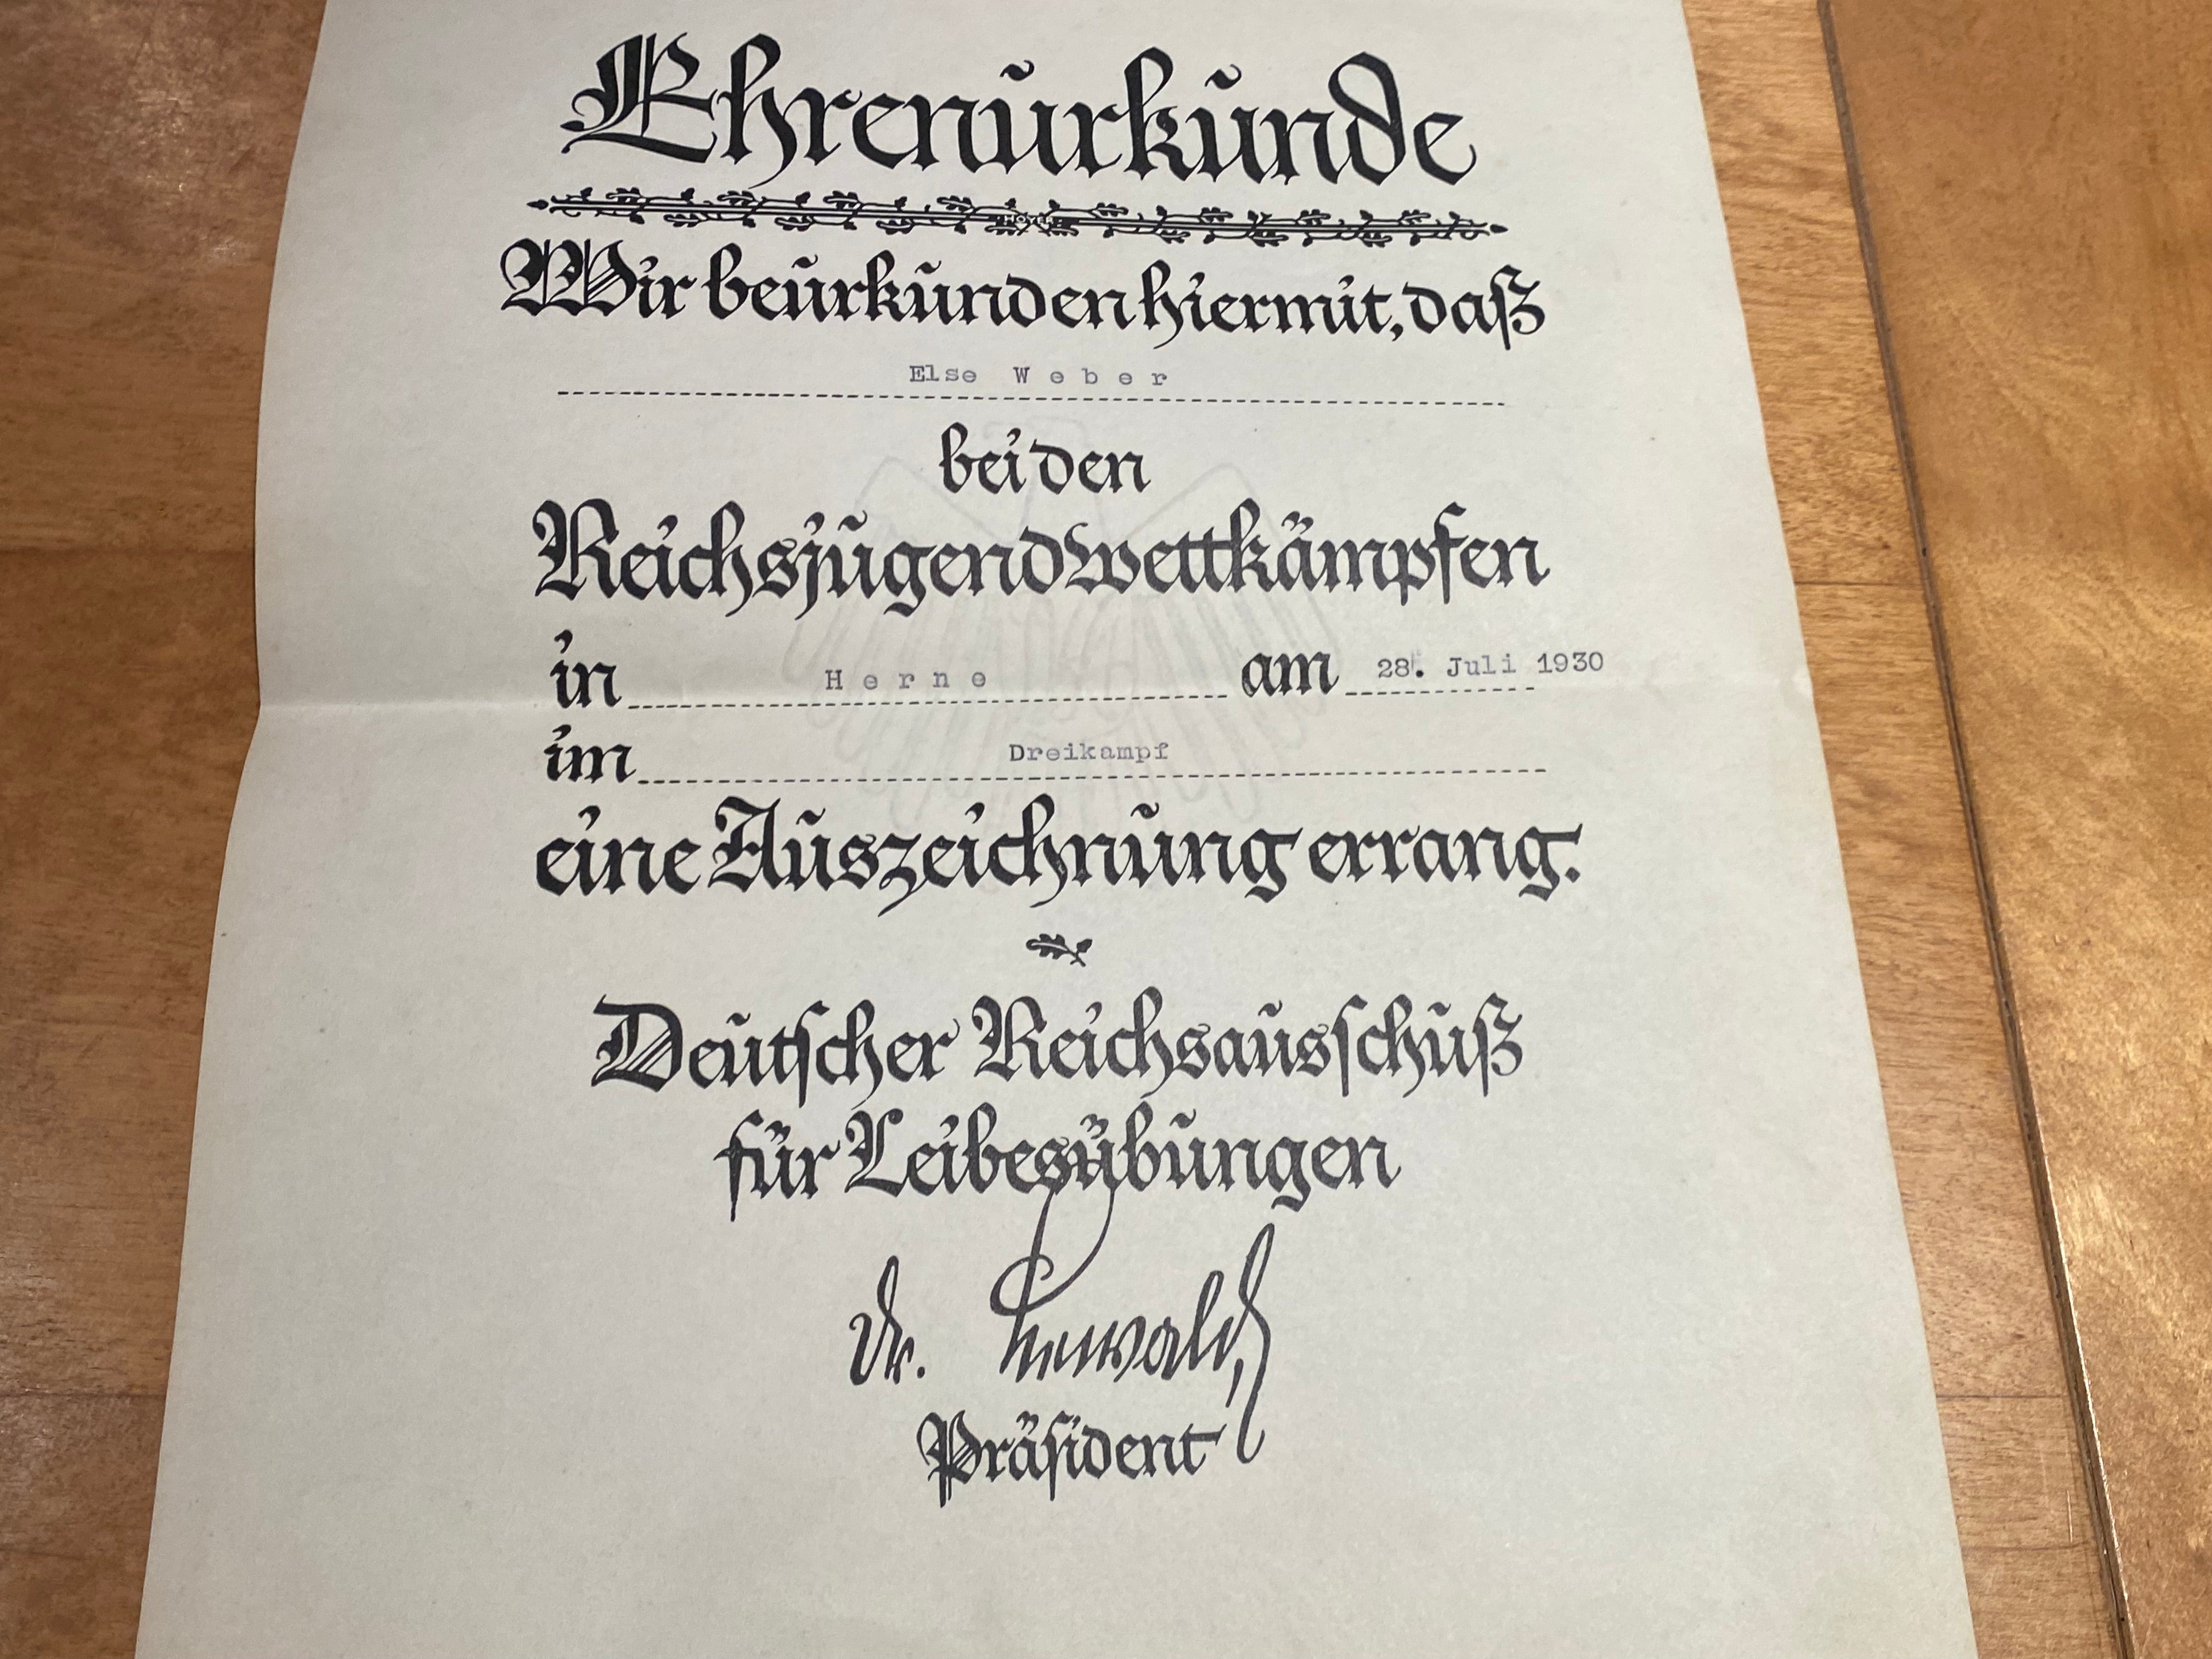 Ehrenurkunde
Wir beurkunden hiermit, daß
Else Weber
bei den
Reichsjugendwettkämpfen
in Herne am 28. Juli 1930
im Dreikampf
eine Auszeichnung errang.
Deutscher Reichsausschuß
für Leibesübungen
Dr. Lewald,
Präsident